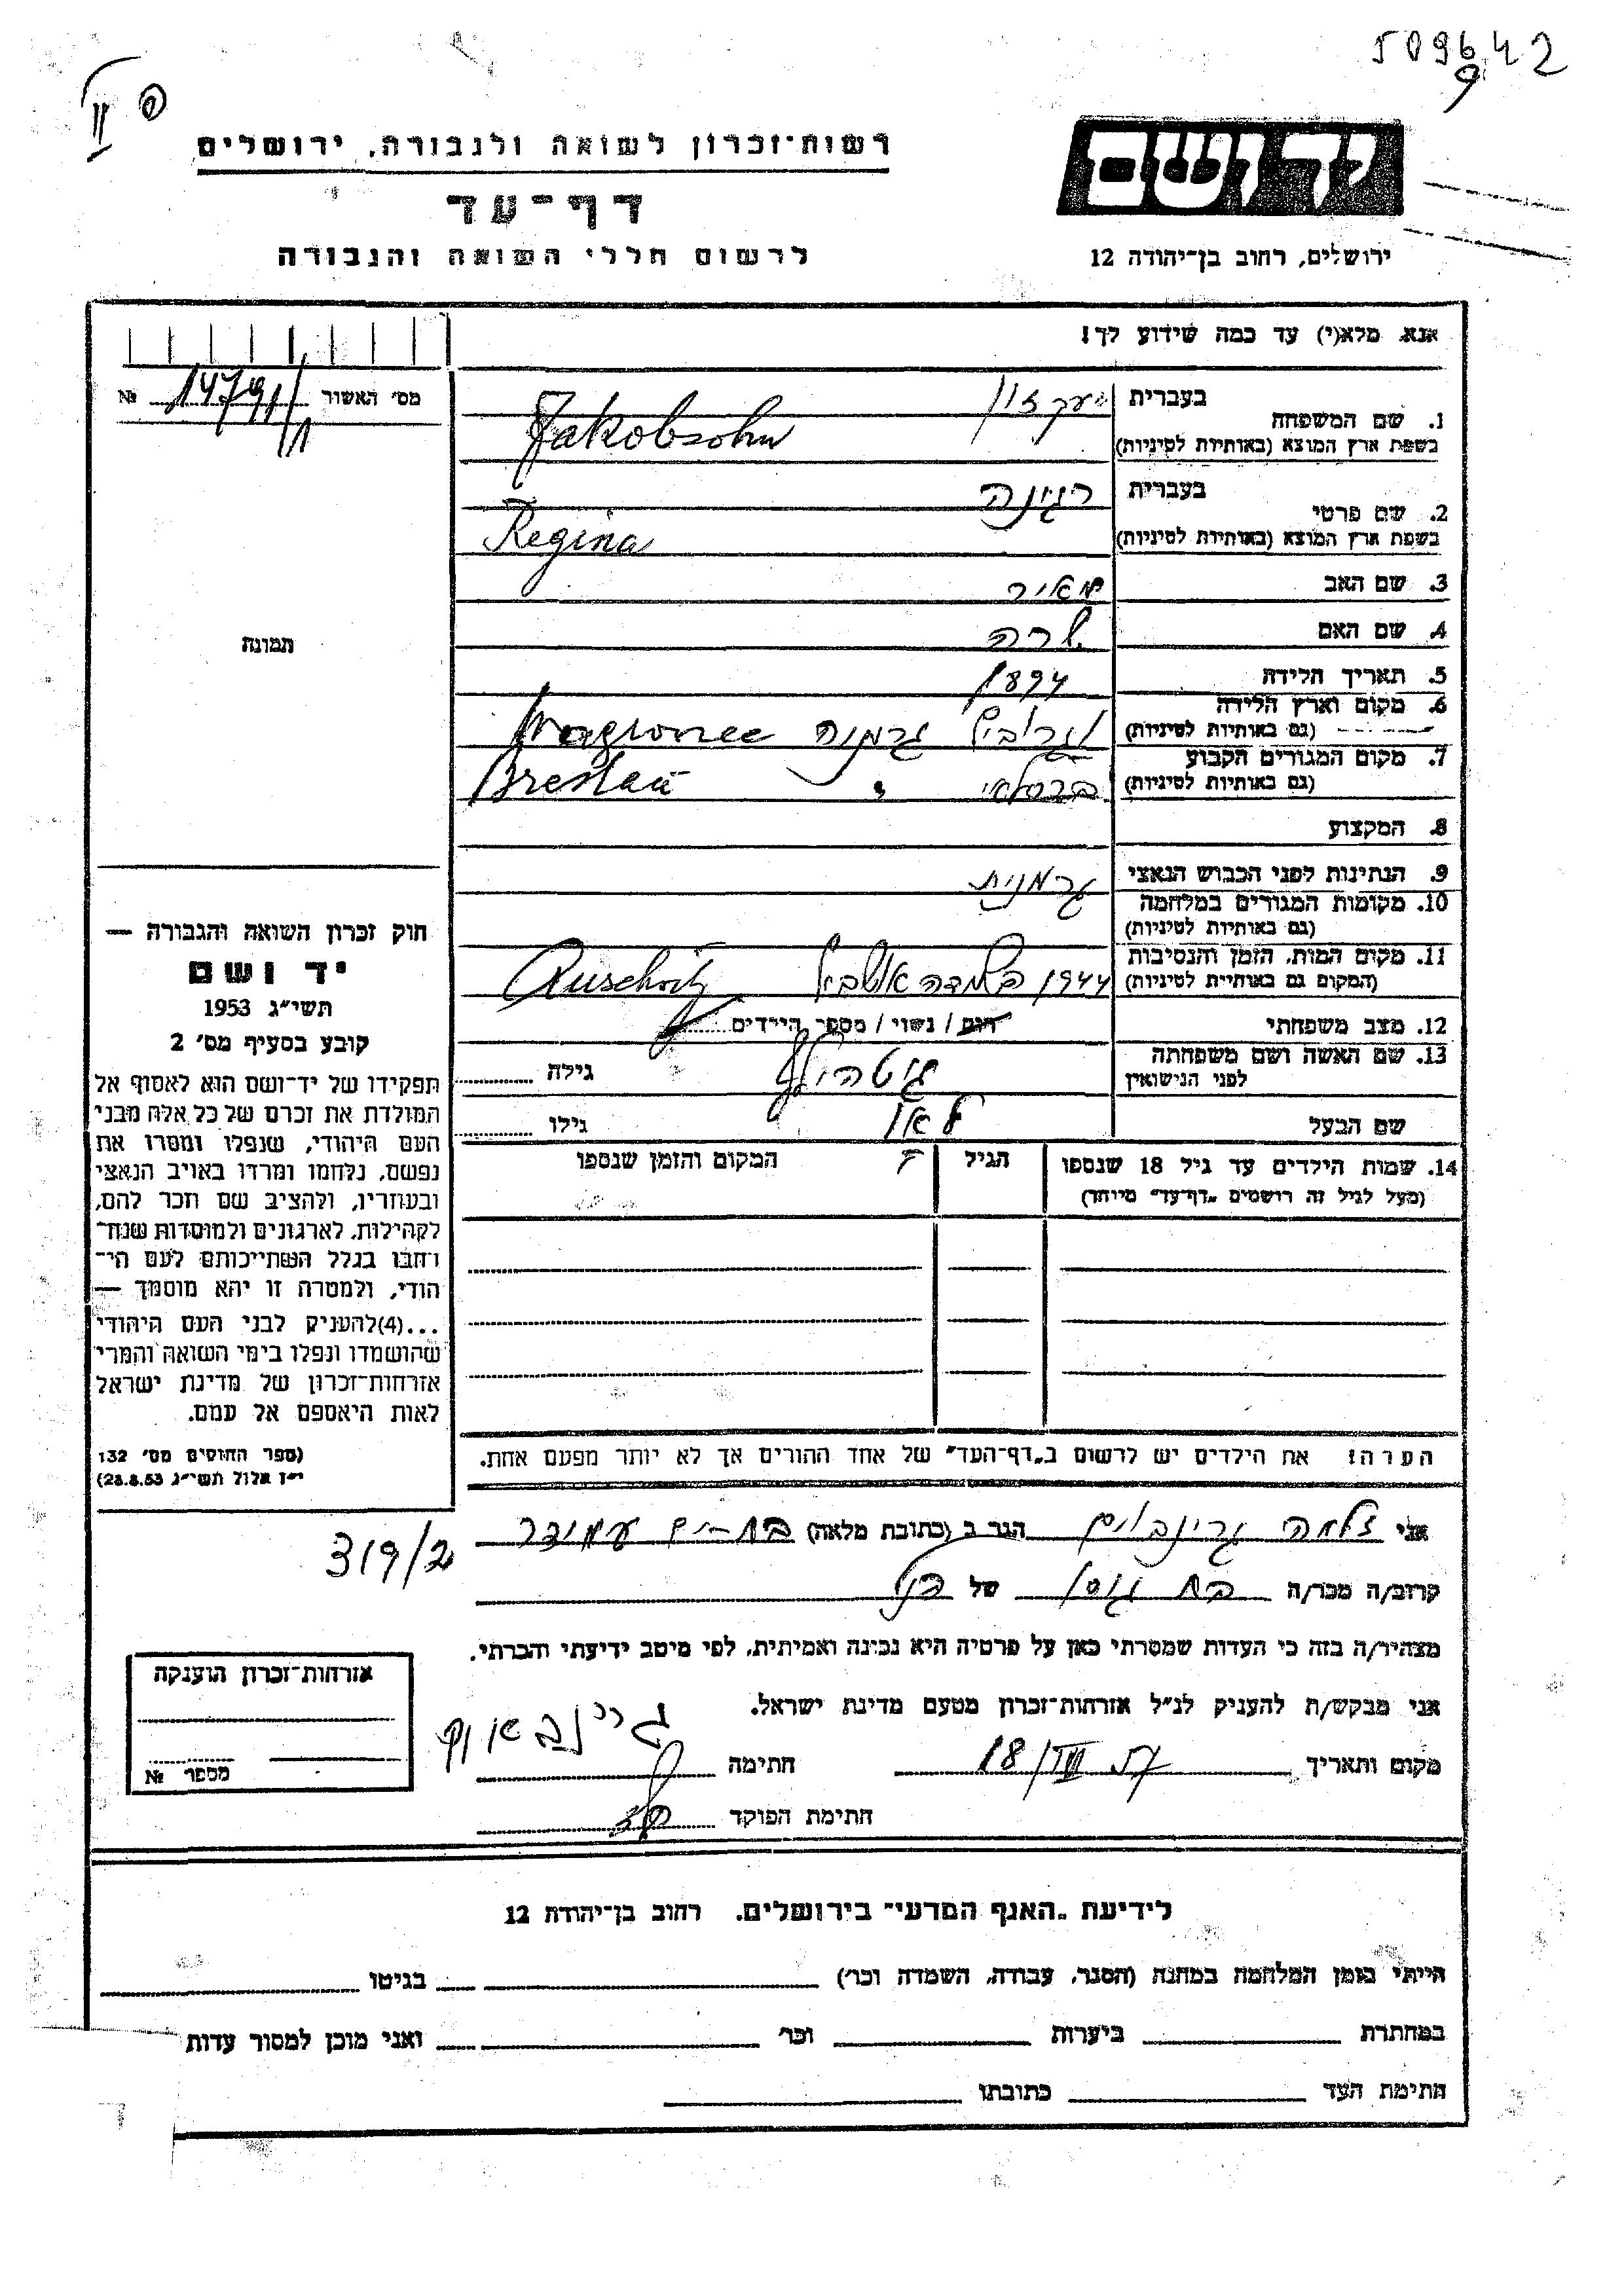 509642
9
II
רשות־זכרון לשואה ולגבורה, ירושלים
דף־עד
לרשום חללי השואה והגבורה
יד ושם
ירושלים, רחוב בן־יהודה 12
אנא, מלא(י) עד כמה שידוע לך!
מס׳ האשור № 14791/1
1. שם המשפחה
בעברית
בשפת ארץ המוצא (באותיות לטיניות)
Jakobsohn
2. שם פרטי
בעברית רגינה
בשפת ארץ המוצא (באותיות לטיניות)
Regina
3. שם האב מאיר
4. שם האם שרה
5. תאריך הלידה 1894
6. מקום וארץ הלידה
(גם באותיות לטיניות) גרמניה
7. מקום המגורים הקבוע
(גם באותיות לטיניות) ברסלאו " Breslau
8. המקצוע
9. הנתינות לפני הכבוש הנאצי גרמנית
10. מקומות המגורים במלחמה
(גם באותיות לטיניות)
11. מקום המות, הזמן והנסיבות
(המקום גם באותיות לטיניות) 1944
12. מצב משפחתי רוק / נשוי / מספר הילדים
13. שם האשה ושם משפחתה
לפני הנישואין גילה
שם הבעל לאו גילו
14. שמות הילדים עד גיל 18 שנספו
(מעל לגיל זה רושמים „דף־עד״ מייוחד)
הגיל
המקום והזמן שנספו
הערה! את הילדים יש לרשום ב„דף־העד״ של אחד ההורים אך לא יותר מפעם אחת.
תמונה
חוק זכרון השואה והגבורה —
יד ושם
תשי״ג 1953
קובע בסעיף מס׳ 2
תפקידו של יד־ושם הוא לאסוף אל
המולדת את זכרם של כל אלה מבני
העם היהודי, שנפלו ומסרו את
נפשם, נלחמו ומרדו באויב הנאצי
ובעוזריו, ולהציב שם וזכר להם,
לקהילות, לארגונים ולמוסדות שנח־
רבו בגלל השתייכותם לעם הי־
הודי, ולמטרה זו יהא מוסמך —
...(4)להעניק לבני העם היהודי
שהושמדו ונפלו בימי השואה והמרי
אזרחות־זכרון של מדינת ישראל
לאות היאספם אל עמם.
(ספר החוקים מס׳ 132
י״ז אלול תשי״ג 28.8.53)
319/2
אני זלמה גרינבוים הגר ב (כתובת מלאה) בת־ים עמידר
קרוב/ה מכר/ה בת גיסן של הנ"ל
מצהיר/ה בזה כי העדות שמסרתי כאן על פרטיה היא נכונה ואמיתית, לפי מיטב ידיעתי והכרתי.
אני מבקש/ת להעניק לנ״ל אזרחות־זכרון מטעם מדינת ישראל.
מקום ותאריך 18/VII 57 חתימה
חתימת הפוקד
אזרחות־זכרון הוענקה
מספר №
לידיעת „האגף המדעי״ בירושלים, רחוב בן־יהודה 12
הייתי בזמן המלחמה במחנה (הסגר, עבודה, השמדה וכו׳) בגיטו
במחתרת ביערות וכו׳ ואני מוכן למסור עדות
חתימת העד כתובתו